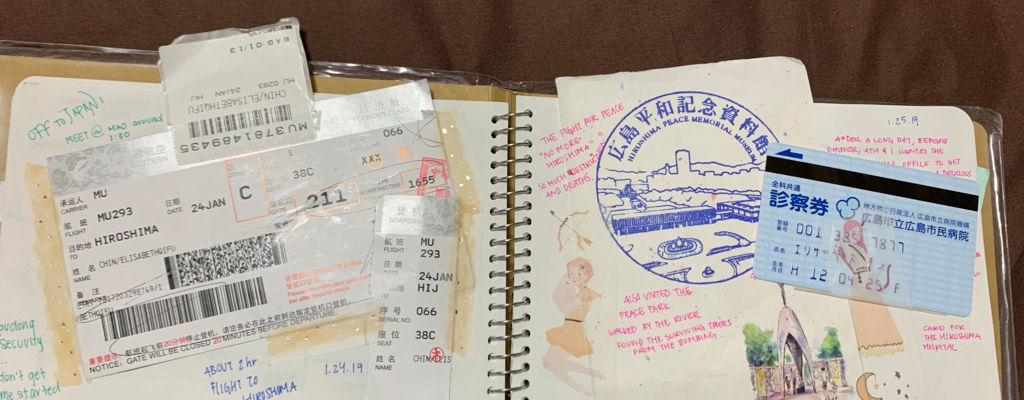 OFF TO JAPAN!
MEET @ MAO around
1:30
BAG:01/13
MU 0293 24JAN HIJ
CHIN/ELISABETHQIFU
MU3781469435
登机牌
ECONOMY CLASS
066
承运人 MU
CARRIER
航班 MU293
FLIGHT
日期 24JAN
DATE
C
38C
XXX
登机口
GATE
211
1655
目的地 HIROSHIMA
TO
姓名 CHIN/ELISABETHQIFU
NAME
备注
REMARKS
BETHQIFU
重要提示: 航班起飞前20分钟停止登机, 请您务必在此之前到达指定登机口登机.
NOTICE: GATE WILL BE CLOSED 20 MINUTES BEFORE DEPARTURE.
登机
BOARD
航班 MU
FLIGHT 293
日期 24JAN
DATE
HIJ
序号 066
SERIAL NO.
座位 38C
SEAT
姓名 CHIN/ELIS
NAME
pudong
security
don't get
me started
ABOUT 2hr
FLIGHT TO
HIROSHIMA
1.24.19
THE FIGHT FOR PEACE
"NO MORE
HIROSHIMA"
SO MUCH DESTRUCTION
AND DEATHS.
広島平和記念資料館
HIROSHIMA PEACE MEMORIAL MUSEUM
ALSO VISITED THE
PEACE PARK.
WALKED BY THE RIVER
FOUND THE SURVIVING TREES
FROM THE BOMBING.
1.25.19
AFTER A LONG DAY, BEFORE
DINNER,
OFFICE TO GET
DELICIOUS
全科共通
診察券
地方独立行政法人 広島市立病院機構
広島市立広島市民病院
登録番号 001 7877
氏名 エリサ
生年月日 H 12 04 25 F
CARD FOR
THE HIROSHIMA
HOSPITAL